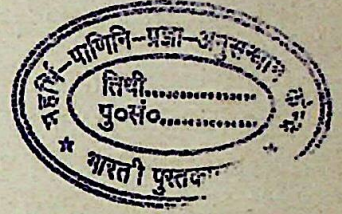 महर्षि-पाणिनि-प्रज्ञा-अनुसन्धान
तिथी..............
पु०सं०..............
* भारती पुस्तका